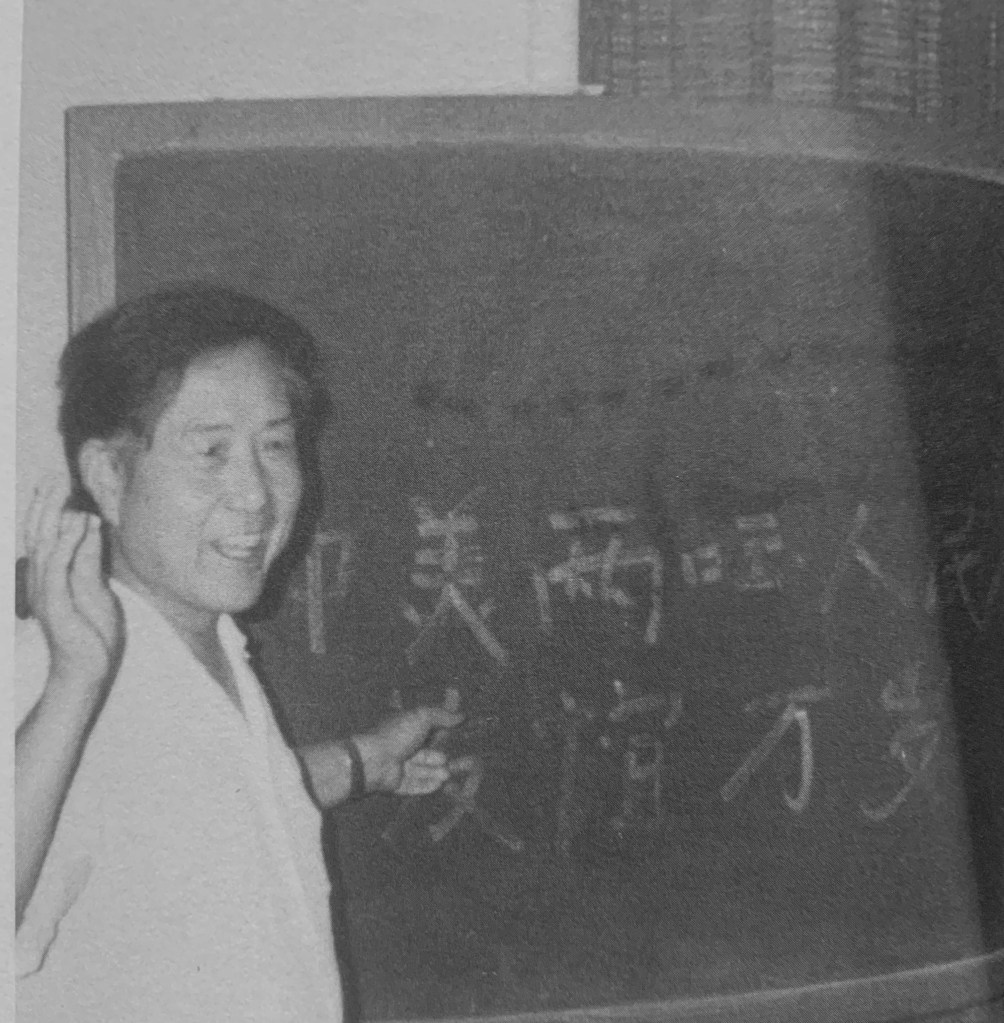 中美两国人民
友谊万岁